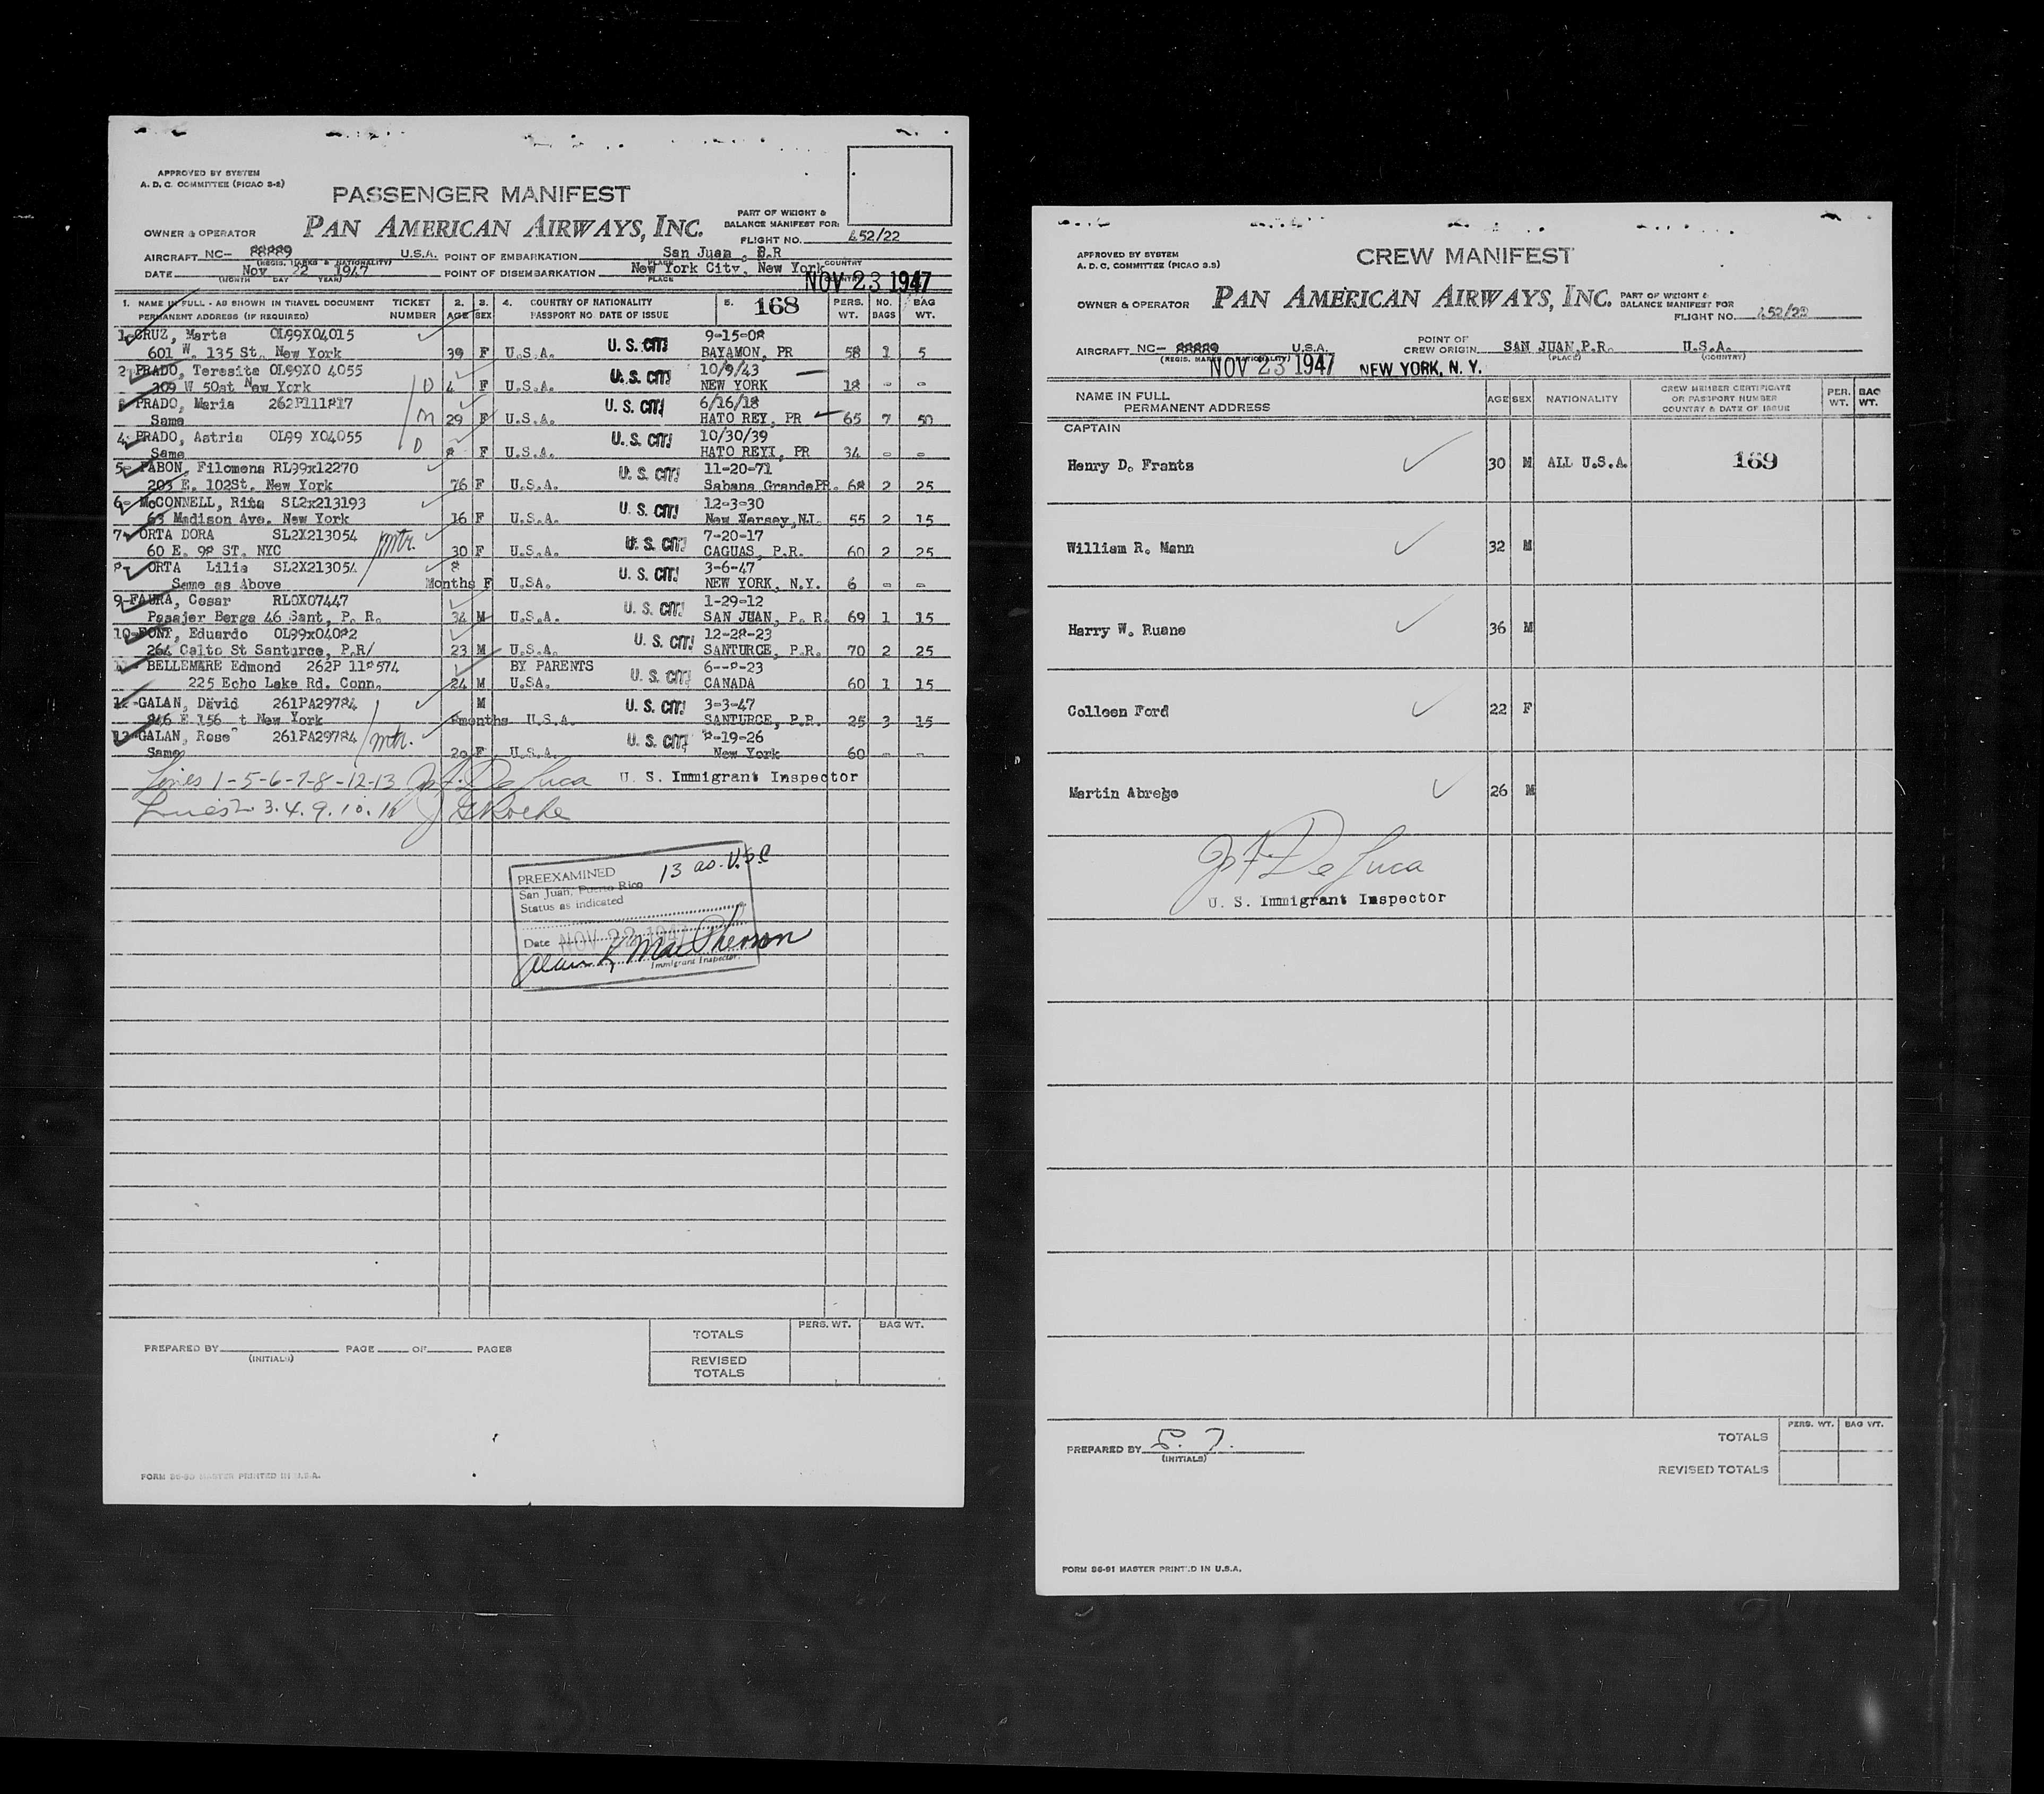 APPROVED BY SYSTEM
A. D. C. COMMITTEE (PICAO 3-2)
PASSENGER MANIFEST
PAN AMERICAN AIRWAYS, INC.
PART OF WEIGHT &
BALANCE MANIFEST FOR:
FLIGHT NO. 452/22
OWNER & OPERATOR
AIRCRAFT NC- 88889 U.S.A. POINT OF EMBARKATION San Juan, P.R
(REGIS. MARKS & NATIONALITY) PLACE COUNTRY
DATE Nov 22 1947 POINT OF DISEMBARKATION New York City, New York
(MONTH DAY YEAR) PLACE
NOV 23 1947
1. NAME IN FULL - AS SHOWN IN TRAVEL DOCUMENT TICKET 2. 3. 4. COUNTRY OF NATIONALITY 5. 168 PERS. NO. BAG
PERMANENT ADDRESS (IF REQUIRED) NUMBER AGE SEX PASSPORT NO. DATE OF ISSUE WT. BAGS WT.
1- CRUZ, Marta OL99X04015 9-15-08
601 W. 135 St. New York 39 F U.S.A. U. S. CIT! BAYAMON, PR 58 1 5
2 PRADO, Teresita OL99X0 4055 10/9/43
309 W 50st New York D 4 F U.S.A. U. S. CIT! NEW YORK 18 - -
3 PRADO, Maria 262P111817 6/16/18
Same M 29 F U.S.A. U. S. CIT! HATO REY, PR 65 7 50
4- PRADO, Astria OL99 X04055 10/30/39
Same D 8 F U.S.A. U. S. CIT! HATO REYI, PR 34 - -
5- PABON, Filomena RL99x12270 11-20-71
203 E. 102St. New York 76 F U.S.A. U. S. CIT! Sabana Grande PR. 68 2 25
6- McCONNELL, Rita SL2x213193 12-3-30
63 Madison Ave. New York 16 F U.S.A. U. S. CIT! New Jersey, NJ. 55 2 15
7- ORTA DORA SL2X213054 7-20-17
60 E. 98 ST. NYC mtr. 30 F U.S.A. U. S. CIT! CAGUAS, P.R. 60 2 25
8- ORTA Lilia SL2X213054 8 3-6-47
Same as Above Months F USA. U. S. CIT! NEW YORK, N.Y. 6 - -
9-FAURA, Cesar RL0X07447 1-29-12
Pasajer Berga 46 Sant, P. R. 34 M U.S.A. U. S. CIT! SAN JUAN, P. R. 69 1 15
10-FONT, Eduardo OL99x04082 12-28-23
264 Calto St Santurce, P.R/ 23 M U.S.A. U. S. CIT! SANTURCE, P.R. 70 2 25
11- BELLEMARE Edmond 262P 118574 BY PARENTS 6--8-23
225 Echo Lake Rd. Conn. 24 M U.SA. U. S. CIT! CANADA 60 1 15
12-GALAN, David 261PA29784 M 3-3-47
846 E 156 t New York 8months U.S.A. U. S. CIT! SANTURCE, P.R. 25 3 15
13-GALAN, Rose 261PA29784 mtr. 8-19-26
Same 20 F U.S.A. U. S. CIT! New York 60 - -
Lines 1-5-6-7-8-12-13 Jos F. De Luca U. S. Immigrant Inspector
Lines 2 3.4.9.10.11
PREEXAMINED 13 as U.S.C
San Juan, Puerto Rico
Status as indicated
Date NOV 22 1947
Immigrant Inspector
TOTALS PERS. WT. BAG WT.
PREPARED BY PAGE OF PAGES
(INITIALS)
REVISED
TOTALS
FORM 96-90 MASTER PRINTED IN U.S.A.
APPROVED BY SYSTEM
A. D. C. COMMITTEE (PICAO 3.3)
CREW MANIFEST
OWNER & OPERATOR PAN AMERICAN AIRWAYS, INC. PART OF WEIGHT &
BALANCE MANIFEST FOR
FLIGHT NO. 452/22
AIRCRAFT NC- 88889 U.S.A. POINT OF
CREW ORIGIN SAN JUAN, P.R. U.S.A.
(REGIS. MARKS & NATIONALITY) (PLACE) (COUNTRY)
NOV 23 1947 NEW YORK, N. Y.
NAME IN FULL AGE SEX NATIONALITY CREW MEMBER CERTIFICATE PER. BAG
PERMANENT ADDRESS OR PASSPORT NUMBER WT. WT.
COUNTRY & DATE OF ISSUE
CAPTAIN
Henry D. Frantz 30 M ALL U.S.A. 169
William R. Mann 32 M
Harry W. Ruane 36 M
Colleen Ford 22 F
Martin Abrego 26 M
Jos F De Luca
U. S. Immigrant Inspector
PERS. WT. BAG WT.
PREPARED BY
(INITIALS)
TOTALS
REVISED TOTALS
FORM 96-91 MASTER PRINTED IN U.S.A.